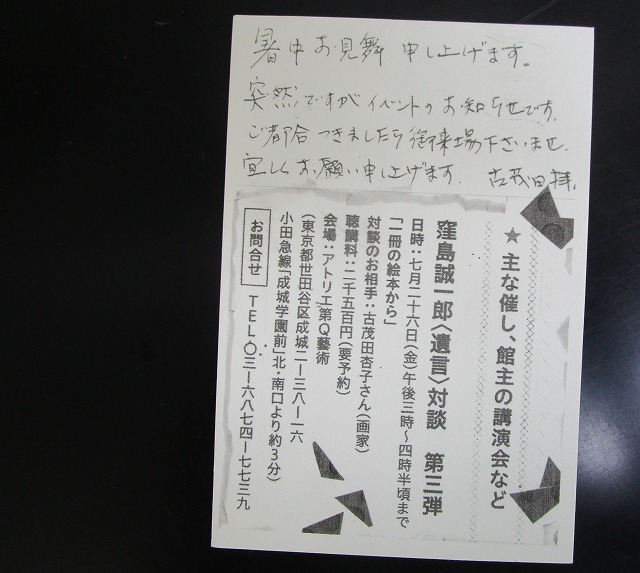 暑中お見舞 申し上げます。
突然ですが イベントの お知らせです。
ご都合 つきましたら 御来場下さいませ。
宜しく お願い申し上げます。 古茂田拝。
★ 主な催し、館主の講演会など
窪島誠一郎〈遺言〉対談 第三弾
日時：七月二十六日（金）午後三時～四時半頃まで
「一冊の絵本から」
対談のお相手：古茂田杏子さん（画家）
聴講料：二千五百円（要予約）
会場：アトリエ第Q藝術
（東京都世田谷区成城二ー三八ー一六
小田急線「成城学園前」北・南口より約3分）
お問合せ TEL〇三ー六八七四ー七七三九